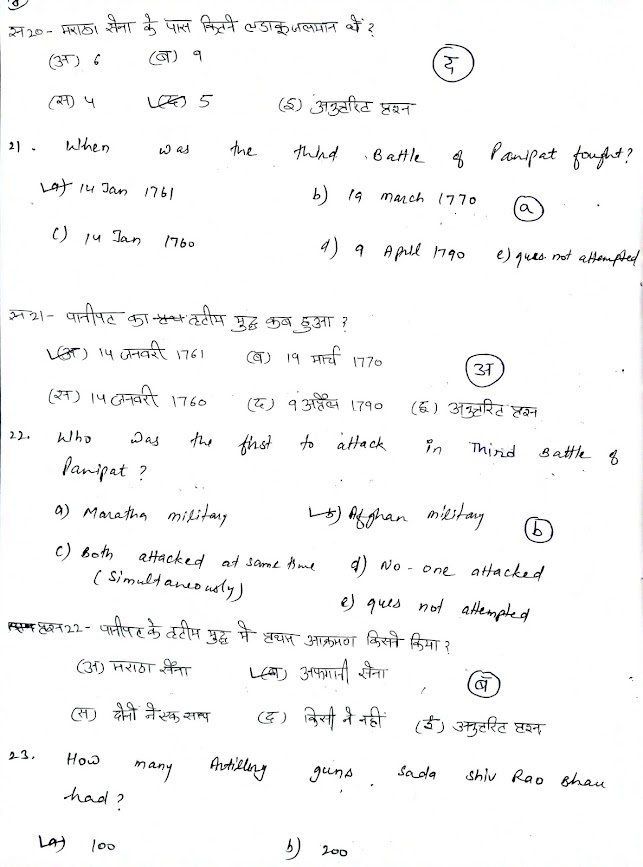 स20- मराठा सेना के पास कितने लडाकू जलयान थे ?
(अ) 6 (ब) 9
द
(स) 4 (द) 5 (इ) अनुत्तरित प्रश्न
21. When was the third Battle of Panipat fought?
a) 14 Jan 1761 b) 19 march 1770
a
c) 14 Jan 1760 d) 9 April 1790 e) ques not attempted
स21- पानीपट का तृतीय युद्ध कब हुआ ?
(अ) 14 जनवरी 1761 (ब) 19 मार्च 1770
अ
(स) 14 जनवरी 1760 (द) 9 अप्रैल 1790 (इ) अनुत्तरित प्रश्न
22. Who was the first to attack in Third Battle of
Panipat ?
a) Maratha military b) Afghan military
b
c) Both attacked at same time d) No-one attacked
(simultaneously)
e) ques not attempted
प्रश्न22- पानीपट के तृतीय युद्ध में प्रथम आक्रमण किसने किया ?
(अ) मराठा सेना (ब) अफगानी सेना
ब
(स) दोनों ने एक साथ (द) किसी ने नहीं (ई) अनुत्तरित प्रश्न
23. How many Artillery guns sada shiv Rao Bhau
had ?
a) 100 b) 200